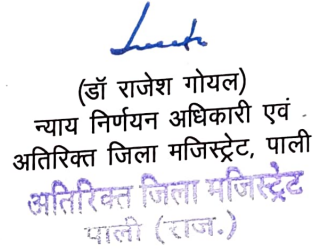 (डॉ राजेश गोयल)
न्याय निर्णयन अधिकारी एवं
अतिरिक्त जिला मजिस्ट्रेट, पाली
अतिरिक्त जिला मजिस्ट्रेट
पाली (राज.)